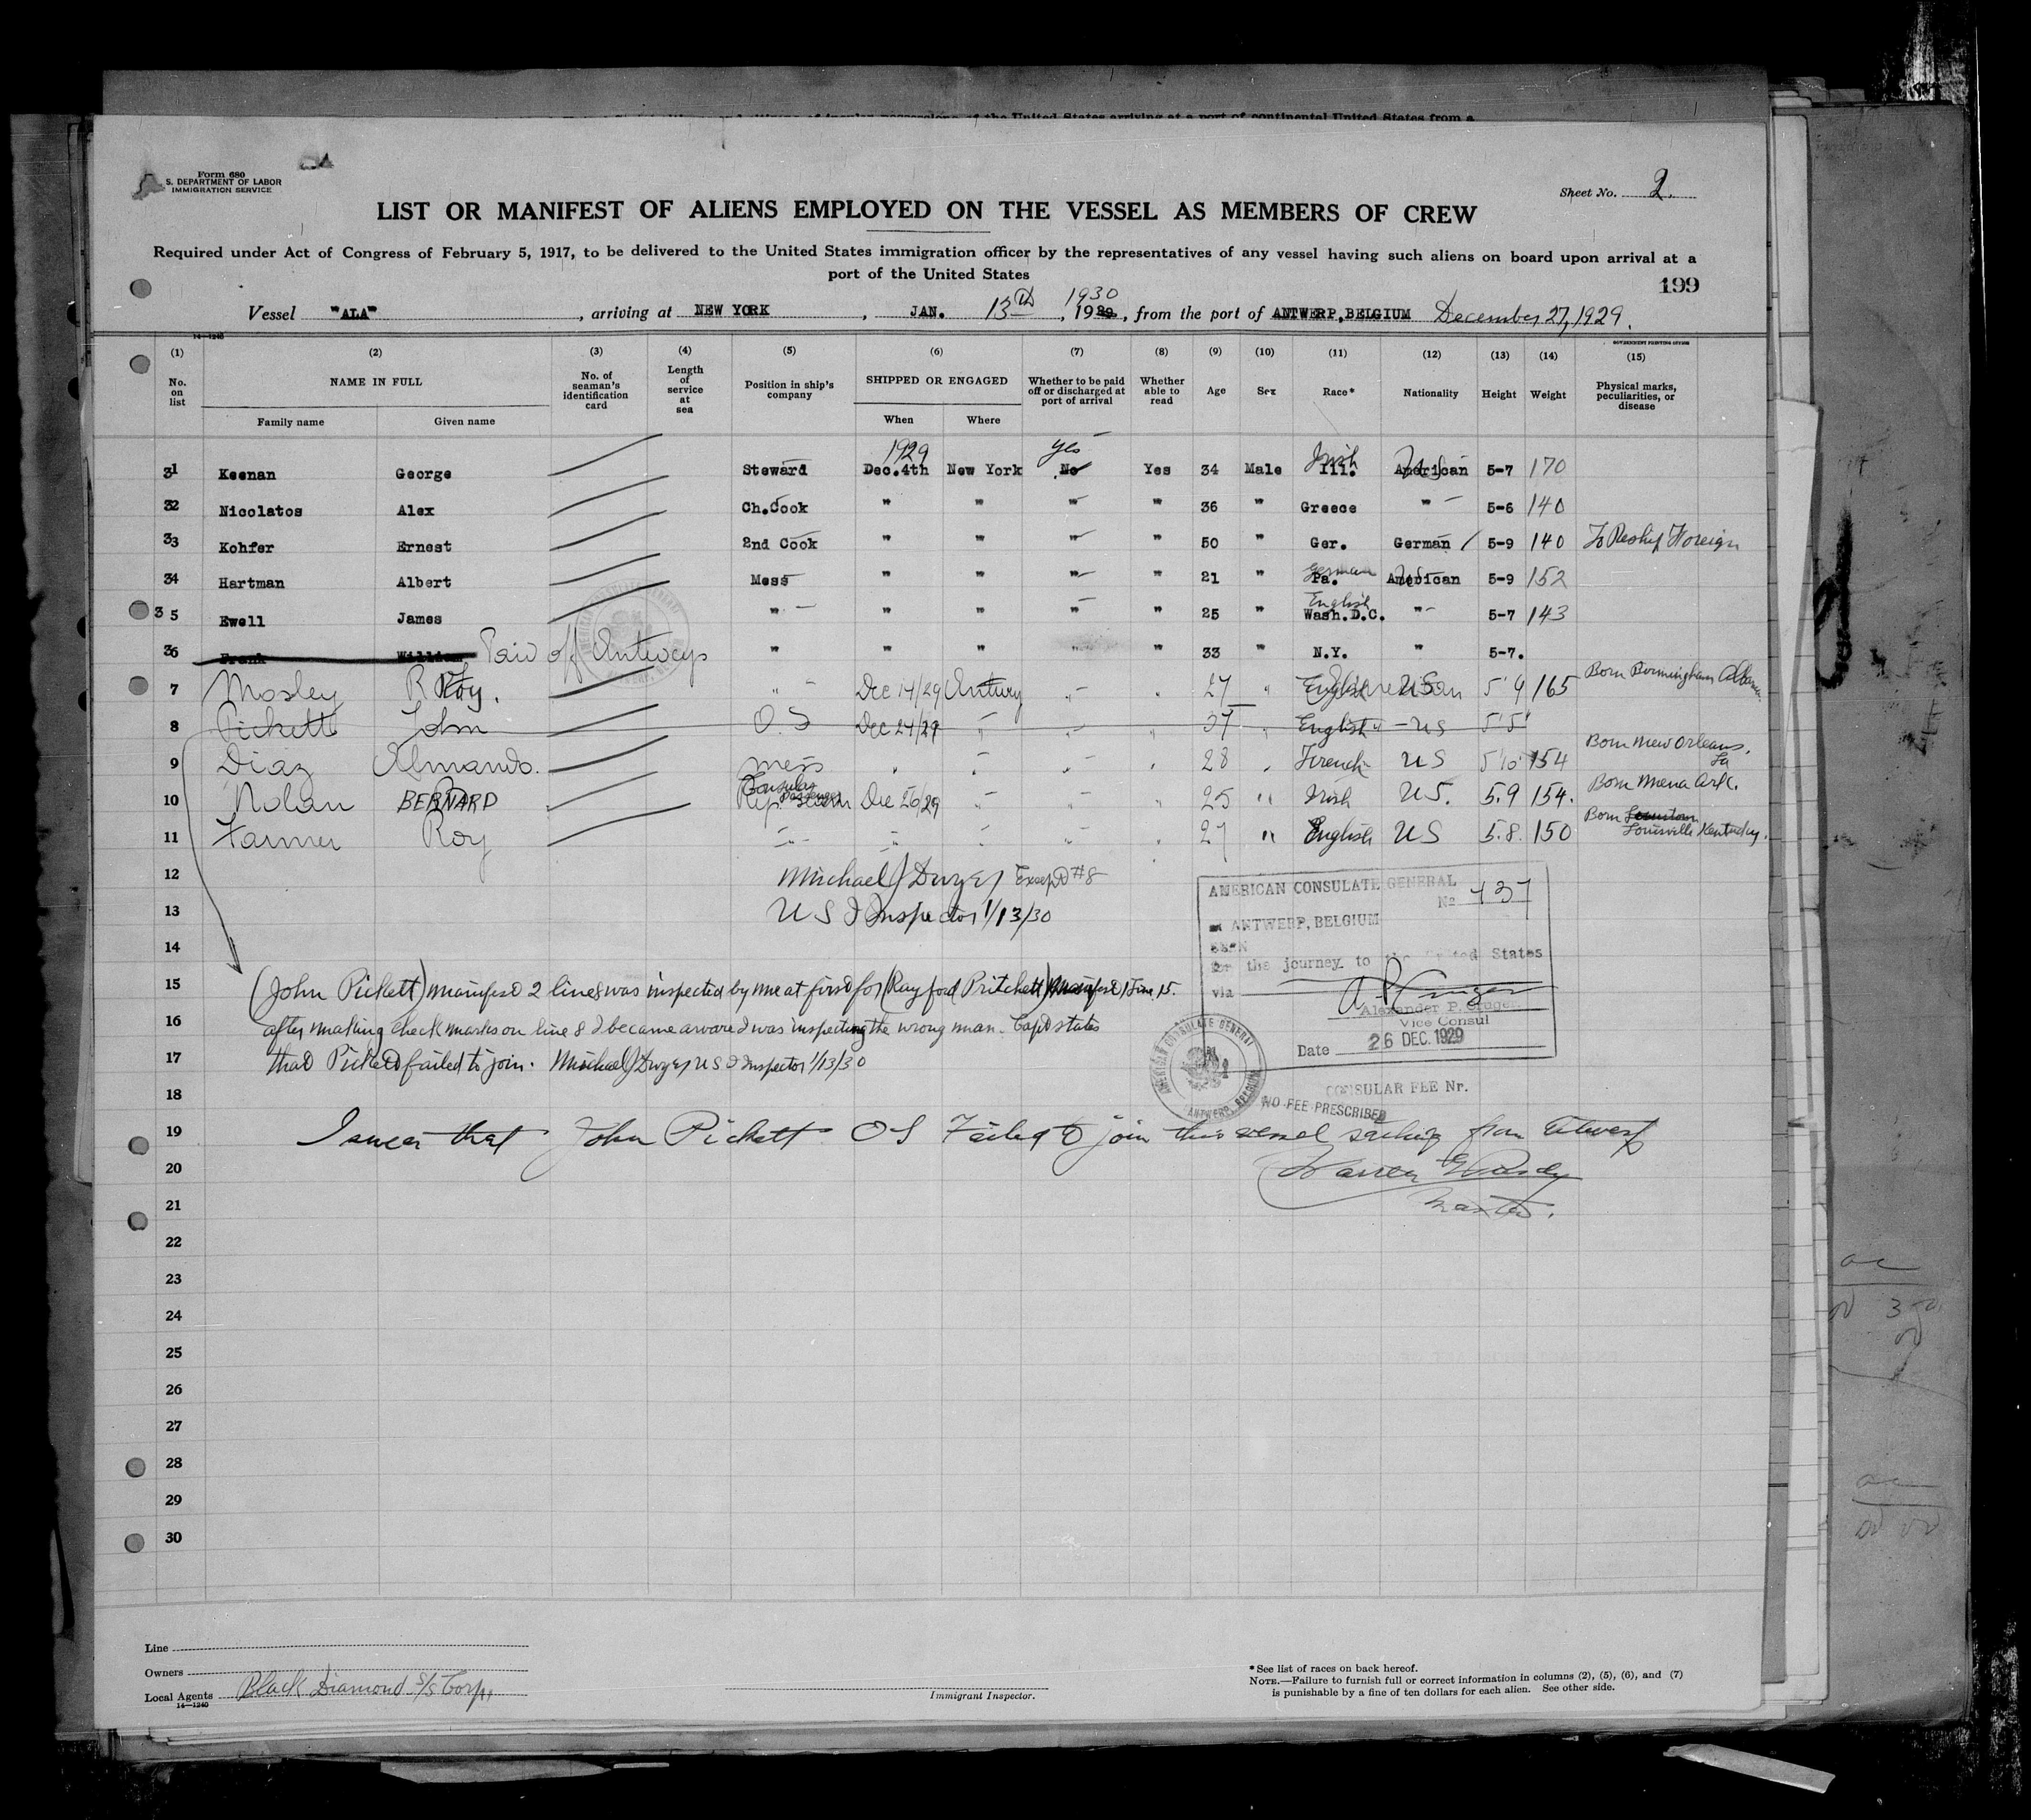 Form 680
S. DEPARTMENT OF LABOR
IMMIGRATION SERVICE
Sheet No. 2.
LIST OR MANIFEST OF ALIENS EMPLOYED ON THE VESSEL AS MEMBERS OF CREW
Required under Act of Congress of February 5, 1917, to be delivered to the United States immigration officer by the representatives of any vessel having such aliens on board upon arrival at a
port of the United States
199
Vessel "ALA", arriving at NEW YORK, JAN. 13th, 1929 1930, from the port of ANTWERP, BELGIUM December 27, 1929.
14—1240
GOVERNMENT PRINTING OFFICE
(1) (2) (3) (4) (5) (6) (7) (8) (9) (10) (11) (12) (13) (14) (15)
No. on list NAME IN FULL No. of seaman's identification card Length of service at sea Position in ship's company SHIPPED OR ENGAGED Whether to be paid off or discharged at port of arrival Whether able to read Age Sex Race* Nationality Height Weight Physical marks, peculiarities, or disease
Family name Given name When Where
31 Keenan George Steward 1929 Dec. 4th New York No yes Yes 34 Male Ill. Irish American US 5-7 170
32 Nicolatos Alex Ch. Cook " " " " 36 " Greece " 5-6 140
33 Kohfer Ernest 2nd Cook " " " " 50 " Ger. German 5-9 140 To Reship Foreign
34 Hartman Albert Mess " " " " 21 " Pa. German American US 5-9 152
35 Ewell James " " " " " 25 " Wash.D.C. English " 5-7 143
36 Frank William Paid off Antwerp " " " " " 33 " N.Y. " 5-7.
7 Mosley Roy. " Dec 14/29 Antwerp " " 27 " English US 5'9 165 Born Birmingham Alabama
8 Pickett John O.S Dec 24/29 " " " " English US 5'5"
9 Diaz Almando. mess " " " " 28 " French US 5'10 154 Born New Orleans, La
10 Nolan BERNARD Consular Passenger Dec 26/29 " " " 25 " Irish US. 5.9 154. Born Mena Ark.
11 Farmer Roy " " " " " 27 " English US 5.8. 150 Born Louisville Kentucky.
12 Michael J Dwyer Except #8
13 U S I Inspector 1/13/30
AMERICAN CONSULATE GENERAL
No 437
at ANTWERP, BELGIUM
SEEN
for the journey to the United States
via
Alexander P. Cruger
Vice Consul
Date 26 DEC. 1929
AMERICAN CONSULATE GENERAL ANTWERP, BELGIUM
CONSULAR FEE Nr.
NO FEE PRESCRIBED
14
15 (John Pickett) manifest 2 line 8 was inspected by me at first for (Rayford Pritchett) Manifest 1 line 15.
16 after making check marks on line 8 I became aware I was inspecting the wrong man. Capt states
17 that Pickett failed to join. Michael J Dwyer U S I Inspector 1/13/30
18
19 I swear that John Pickett OS Failed to join this vessel sailing from Antwerp
20
21 Master.
22
23
24
25
26
27
28
29
30
Line
Owners
Local Agents Black Diamond S/S Corp.
14—1240
Immigrant Inspector.
*See list of races on back hereof.
NOTE.—Failure to furnish full or correct information in columns (2), (5), (6), and (7)
is punishable by a fine of ten dollars for each alien. See other side.